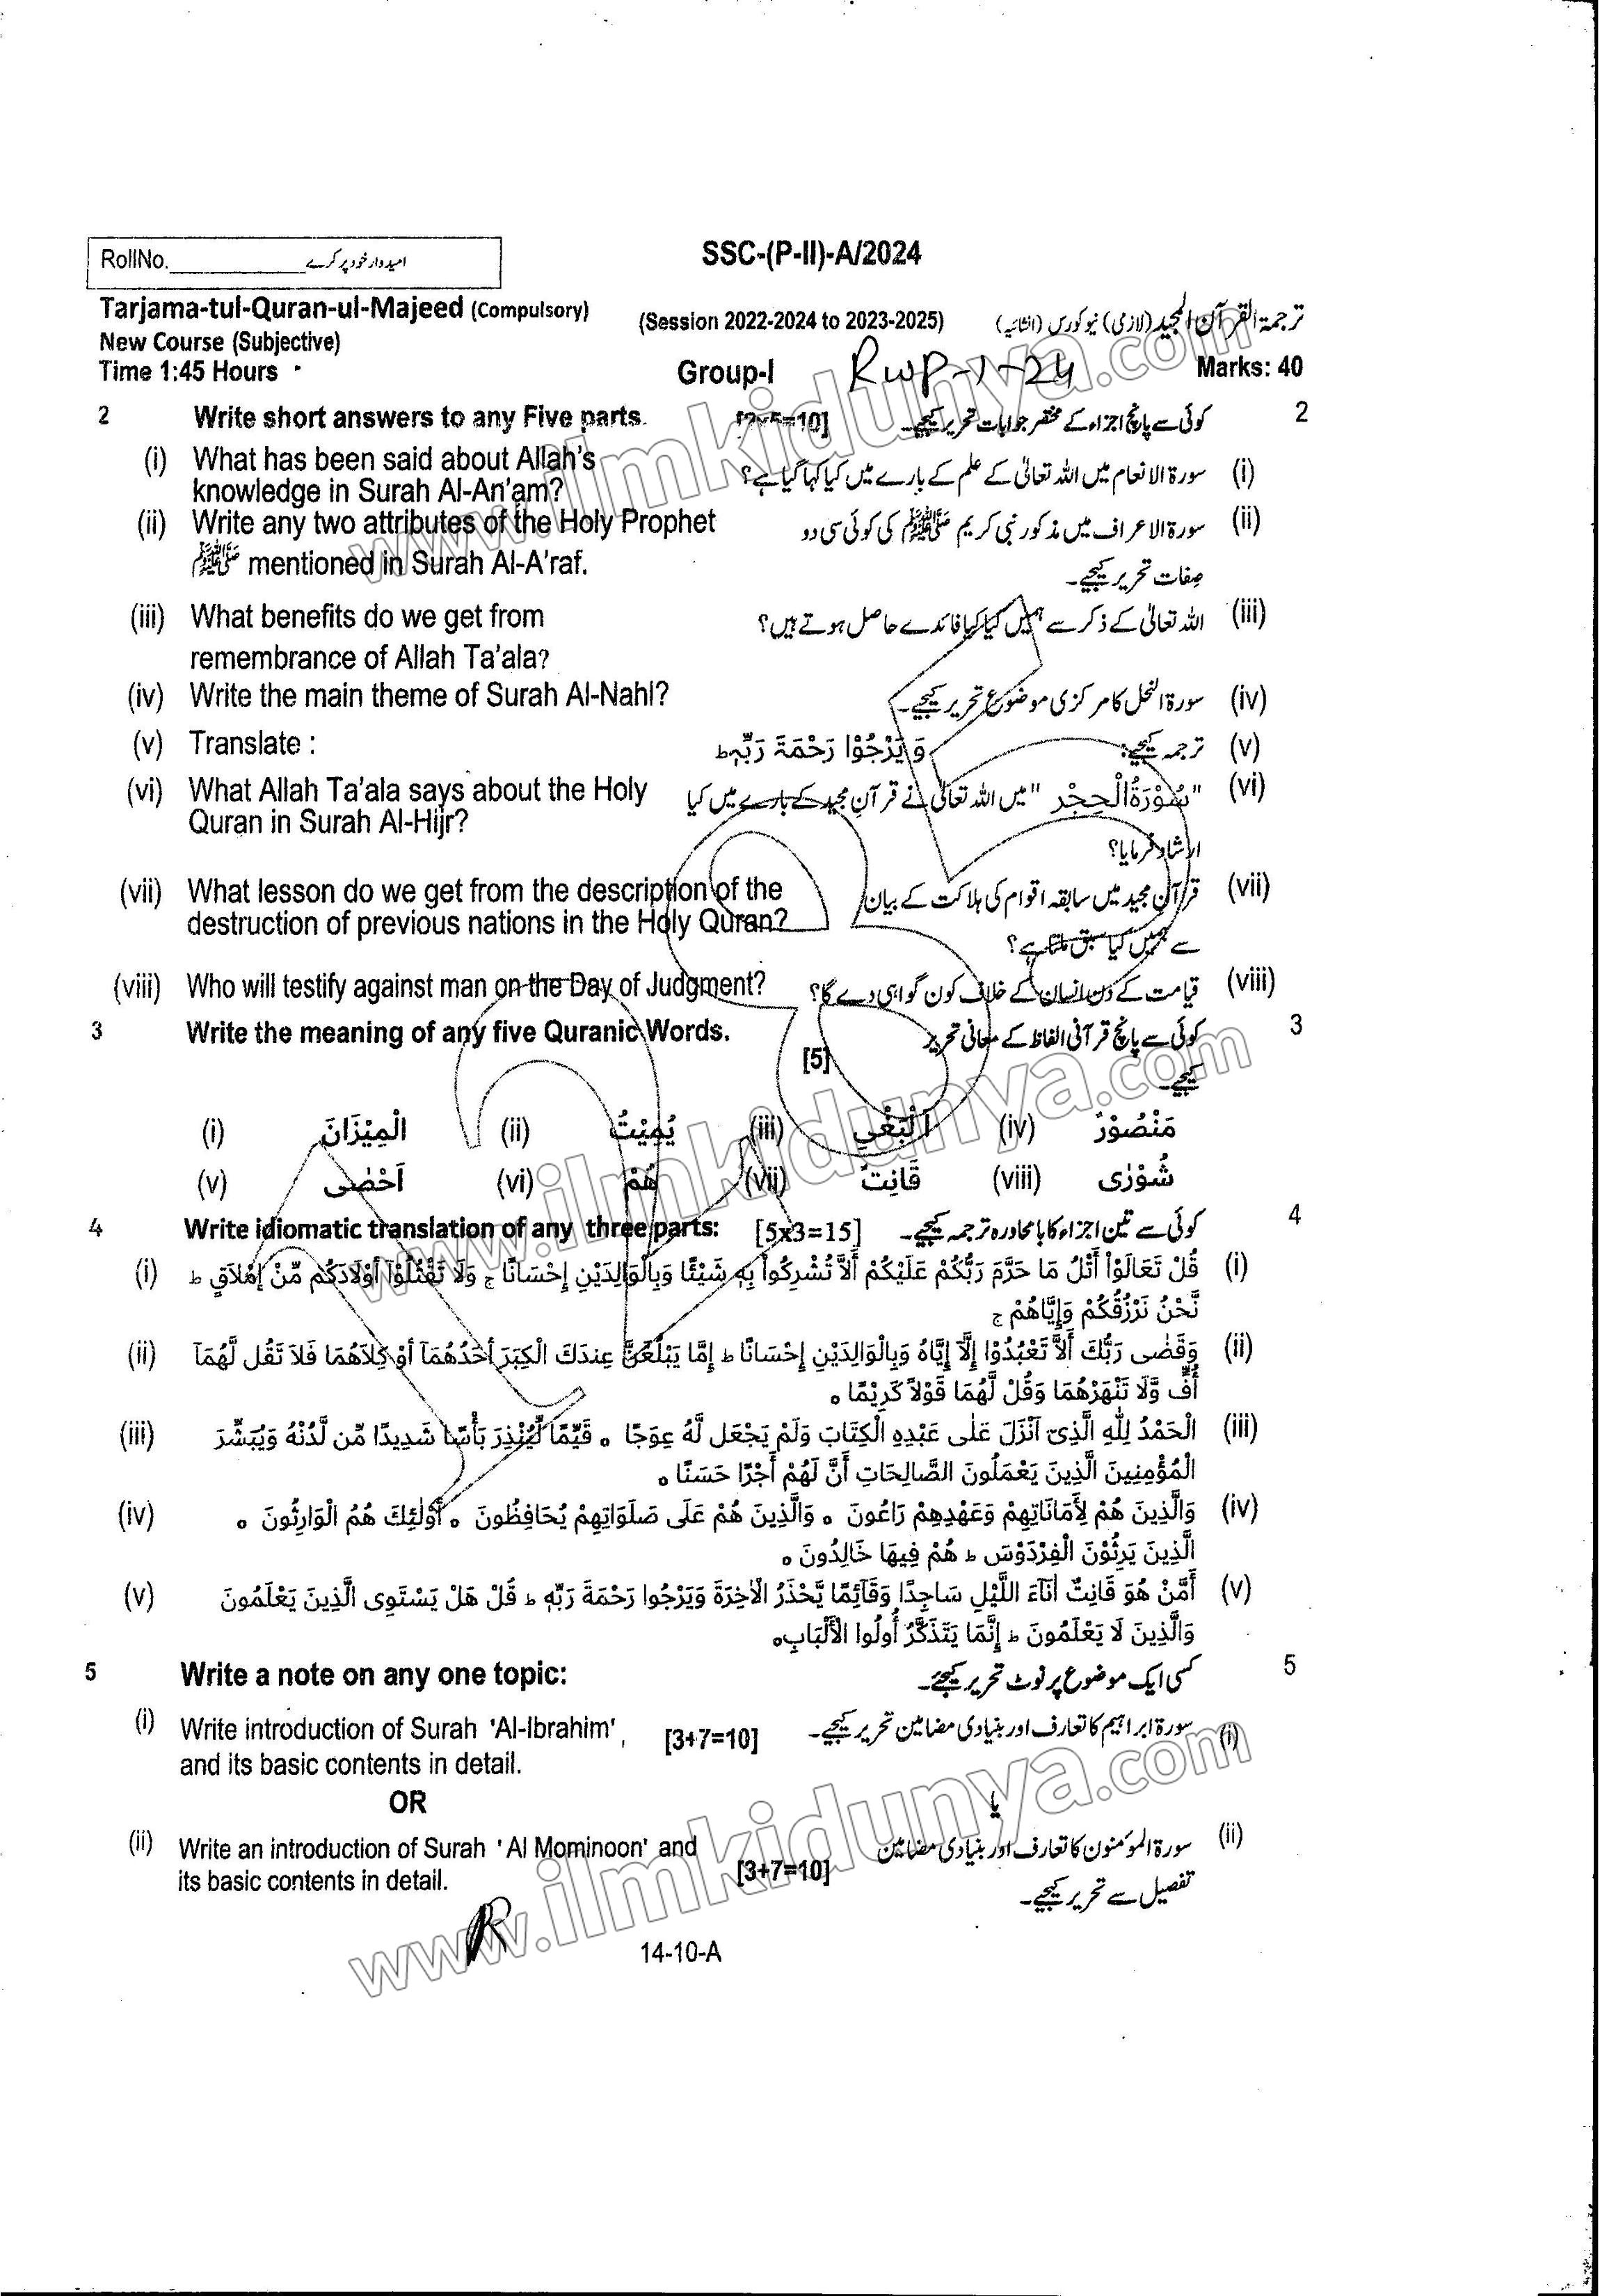 SSC-(P-II)-A/2024
RollNo.____________امیدوار خود پر کرے
Tarjama-tul-Quran-ul-Majeed (Compulsory) (Session 2022-2024 to 2023-2025) ترجمۃ القرآن المجید (لازمی) نیو کورس (انشائیہ)
New Course (Subjective)
Time 1:45 Hours Group-I RWP-1-24 Marks: 40
2 Write short answers to any Five parts. [2x5=10] کوئی سے پانچ اجزاء کے مختصر جوابات تحریر کیجیے۔ 2
(i) What has been said about Allah's سورۃ الانعام میں اللہ تعالیٰ کے علم کے بارے میں کیا کہا گیا ہے؟ (i)
knowledge in Surah Al-An'am?
(ii) Write any two attributes of the Holy Prophet سورۃ الاعراف میں مذکور نبی کریم ﷺ کی کوئی سی دو (ii)
ﷺ mentioned in Surah Al-A'raf. صفات تحریر کیجیے۔
(iii) What benefits do we get from اللہ تعالیٰ کے ذکر سے ہمیں کیا کیا فائدے حاصل ہوتے ہیں؟ (iii)
remembrance of Allah Ta'ala?
(iv) Write the main theme of Surah Al-Nahl? سورۃ النحل کا مرکزی موضوع تحریر کیجیے۔ (iv)
(v) Translate : وَ یَرْجُوْا رَحْمَۃَ رَبِّہٖ ط ترجمہ کیجیے: (v)
(vi) What Allah Ta'ala says about the Holy "سُوْرَۃُ الْحِجْر" میں اللہ تعالیٰ نے قرآنِ مجید کے بارے میں کیا (vi)
Quran in Surah Al-Hijr? ارشاد فرمایا؟
(vii) What lesson do we get from the description of the قرآنِ مجید میں سابقہ اقوام کی ہلاکت کے بیان (vii)
destruction of previous nations in the Holy Quran? سے ہمیں کیا سبق ملتا ہے؟
(viii) Who will testify against man on the Day of Judgment? قیامت کے دن انسان کے خلاف کون گواہی دے گا؟ (viii)
3 Write the meaning of any five Quranic Words. [5] کوئی سے پانچ قرآنی الفاظ کے معانی تحریر 3
کیجیے۔
(i) الْمِیْزَانَ (ii) یُمِیْتُ (iii) اَلْبَغْیِ (iv) مَنْصُوْرٌ
(v) اَحْصٰی (vi) هُمْ (vii) قَانِتٌ (viii) شُوْرٰی
4 Write idiomatic translation of any three parts: [5x3=15] کوئی سے تین اجزاء کا بامحاورہ ترجمہ کیجیے۔ 4
(i) قُلْ تَعَالَوْا أَتْلُ مَا حَرَّمَ رَبُّكُمْ عَلَيْكُمْ أَلَّا تُشْرِكُواْ بِهٖ شَيْئًا وَبِالْوَالِدَيْنِ إِحْسَانًا ج وَلَا تَقْتُلُوْا أَوْلَادَكُم مِّنْ إِمْلَاقٍ ط (i)
نَّحْنُ نَرْزُقُكُمْ وَإِيَّاهُمْ ج
(ii) وَقَضٰى رَبُّكَ أَلَّا تَعْبُدُوْا إِلَّا إِيَّاهُ وَبِالْوَالِدَيْنِ إِحْسَانًا ط إِمَّا يَبْلُغَنَّ عِندَكَ الْكِبَرَ أَحَدُهُمَآ أَوْ كِلَاهُمَا فَلَا تَقُل لَّهُمَآ (ii)
أُفٍّ وَّلَا تَنْهَرْهُمَا وَقُلْ لَّهُمَا قَوْلًا كَرِيْمًا ہ
(iii) الْحَمْدُ لِلّٰهِ الَّذِیْ اَنْزَلَ عَلٰى عَبْدِهِ الْكِتَابَ وَلَمْ يَجْعَل لَّهُ عِوَجًا ہ قَيِّمًا لِّيُنْذِرَ بَأْسًا شَدِيدًا مِّن لَّدُنْهُ وَيُبَشِّرَ (iii)
الْمُؤْمِنِينَ الَّذِينَ يَعْمَلُونَ الصَّالِحَاتِ أَنَّ لَهُمْ أَجْرًا حَسَنًا ہ
(iv) وَالَّذِينَ هُمْ لِأَمَانَاتِهِمْ وَعَهْدِهِمْ رَاعُونَ ہ وَالَّذِينَ هُمْ عَلَى صَلَوَاتِهِمْ يُحَافِظُونَ ہ أُوْلٰئِكَ هُمُ الْوَارِثُونَ ہ (iv)
الَّذِينَ يَرِثُوْنَ الْفِرْدَوْسَ ط هُمْ فِيهَا خَالِدُونَ ہ
(v) أَمَّنْ هُوَ قَانِتٌ اٰنَآءَ اللَّيْلِ سَاجِدًا وَقَآئِمًا يَّحْذَرُ الْاٰخِرَةَ وَيَرْجُوا رَحْمَةَ رَبِّهٖ ط قُلْ هَلْ يَسْتَوِى الَّذِينَ يَعْلَمُونَ (v)
وَالَّذِينَ لَا يَعْلَمُونَ ط إِنَّمَا يَتَذَكَّرُ أُولُوا الْأَلْبَابِ ہ
5 Write a note on any one topic: کسی ایک موضوع پر نوٹ تحریر کیجئے۔ 5
(i) Write introduction of Surah 'Al-Ibrahim', [3+7=10] سورۃ ابراہیم کا تعارف اور بنیادی مضامین تحریر کیجیے۔ (i)
and its basic contents in detail.
OR یا
(ii) Write an introduction of Surah 'Al Mominoon' and [3+7=10] سورۃ المؤمنون کا تعارف اور بنیادی مضامین (ii)
its basic contents in detail. تفصیل سے تحریر کیجیے۔
14-10-A
www.ilmkidunya.com
www.ilmkidunya.com
www.ilmkidunya.com